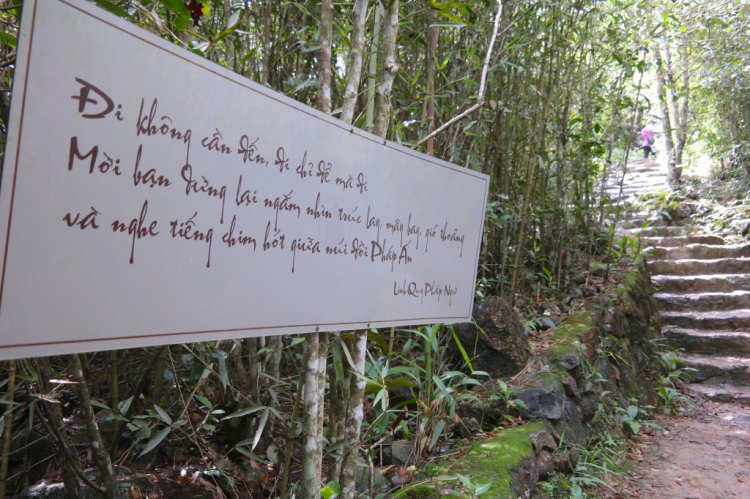 Đi không cần đến, đi chỉ để mà đi
Mời bạn dừng lại ngắm nhìn trúc lay, mây bay, gió thoảng
và nghe tiếng chim hót giữa núi đồi Pháp Ấn
Linh Quy Pháp Ngữ